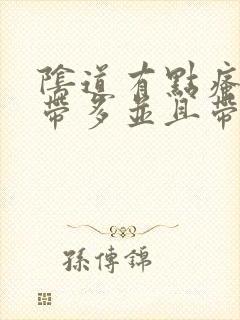 陰道有點癢
帶多並且帶
孫傳錦